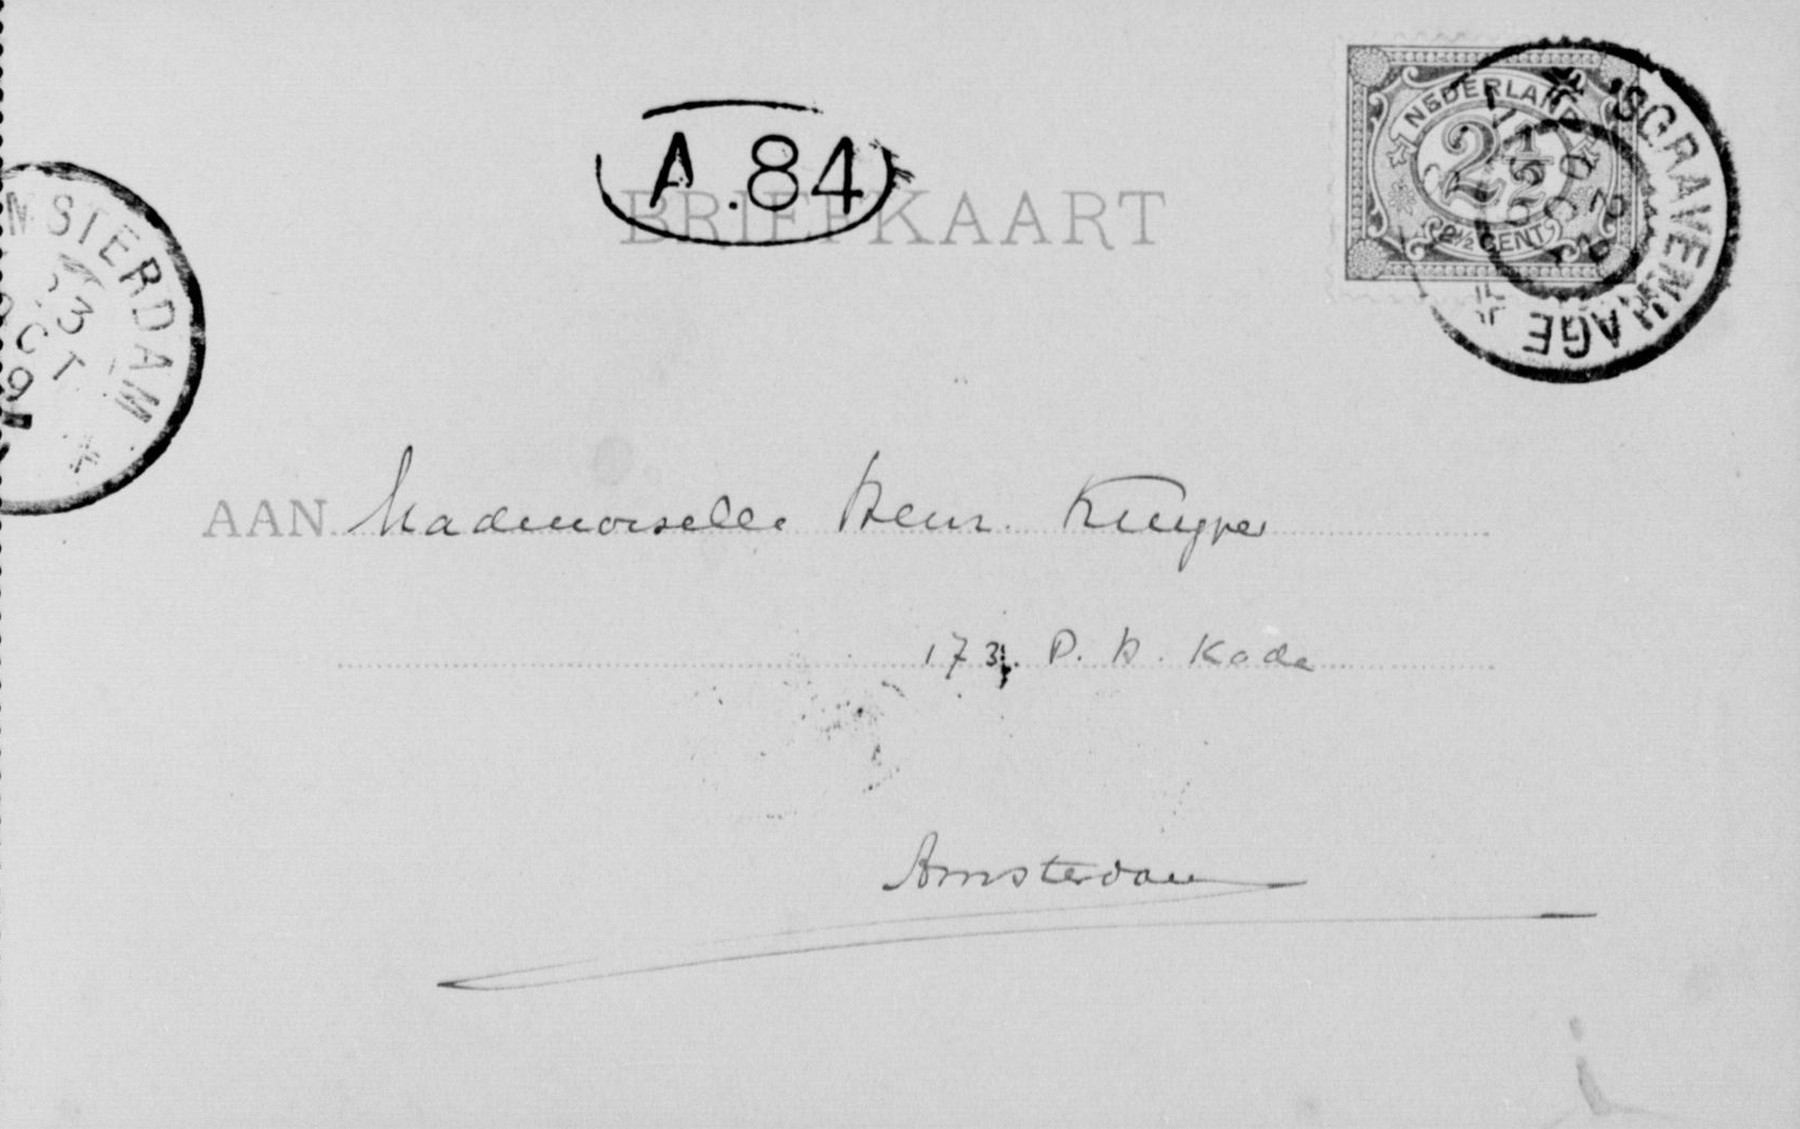 A.84
BRIEFKAART
NEDERLAND
2½
2½ CENT
'SGRAVENHAGE
AMSTERDAM
23
OCT
9
AAN Mademoiselle Henr. Kuyper
173. P. H. Kade
Amsterdam